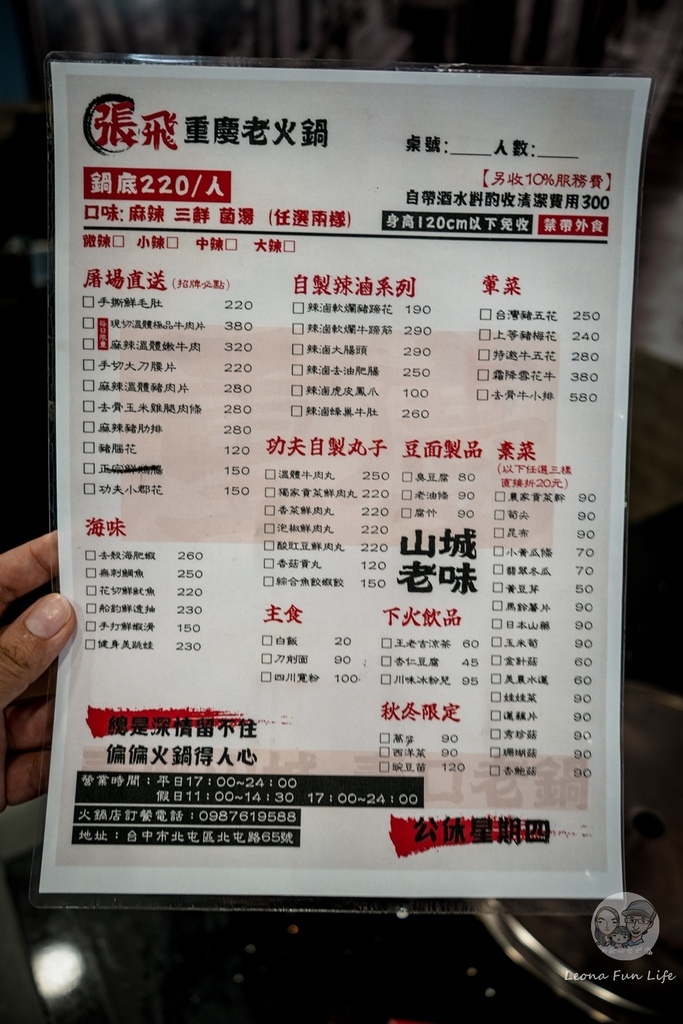 張飛重慶老火鍋
桌號:____人數:____
鍋底220/人
【另收10%服務費】
自帶酒水料酌收清潔費用300
口味: 麻辣 三鮮 菌湯 (任選兩樣)
身高120cm以下免收 禁帶外食
微辣□ 小辣□ 中辣□ 大辣□
屠場直送(招牌必點)
□手撕鮮毛肚 220
□每日限量 現切溫體極品牛肉片 380
□麻辣溫體嫩牛肉 320
□手切大刀腰片 220
□麻辣溫體豬肉片 280
□去骨玉米雞腿肉條 280
□麻辣豬肋排 280
□豬腦花 120
□正宗鮮鴨腸 150
□功夫小郡花 150
海味
□去殼海肥蝦 260
□無刺鯛魚 250
□花切鮮魷魚 220
□船釣鮮透抽 230
□手打鮮蝦滑 150
□健身美跳蛙 230
自製辣滷系列
□辣滷軟爛豬蹄花 190
□辣滷軟爛牛蹄筋 290
□辣滷大腸頭 290
□辣滷去油肥腸 250
□辣滷虎皮鳳爪 100
□辣滷蜂巢牛肚 260
葷菜
□台灣豬五花 250
□上等豬梅花 240
□特選牛五花 280
□霜降雪花牛 380
□去骨牛小排 580
功夫自製丸子
□溫體牛肉丸 250
□獨家貢菜鮮肉丸 220
□香菜鮮肉丸 220
□泡椒鮮肉丸 220
□酸豇豆鮮肉丸 220
□香菇貢丸 120
□綜合魚餃蝦餃 150
豆面製品
□臭豆腐 80
□老油條 90
□腐竹 90
山城
老味
素菜
(以下任選三樣
直接折20元)
□農家貢菜幹 90
□筍尖 90
□昆布 90
□小黃瓜條 70
□翡翠冬瓜 70
□黃豆芽 50
□馬鈴薯片 90
□日本山藥 90
□玉米筍 90
□金針菇 60
□美農水蓮 60
□娃娃菜 90
□蓮藕片 90
□秀珍菇 90
□珊瑚菇 90
□杏鮑菇 90
主食
□白飯 20
□刀削面 90
□四川寬粉 100
下火飲品
□王老吉涼茶 60
□杏仁豆腐 45
□川味冰粉兒 95
秋冬限定
□萵筍 90
□西洋菜 90
□豌豆苗 120
總是深情留不住
偏偏火鍋得人心
營業時間:平日17:00~24:00
假日11:00~14:30 17:00~24:00
火鍋店訂餐電話:0987619588
地址:台中市北屯區北屯路65號
公休星期四
Leona Fun Life